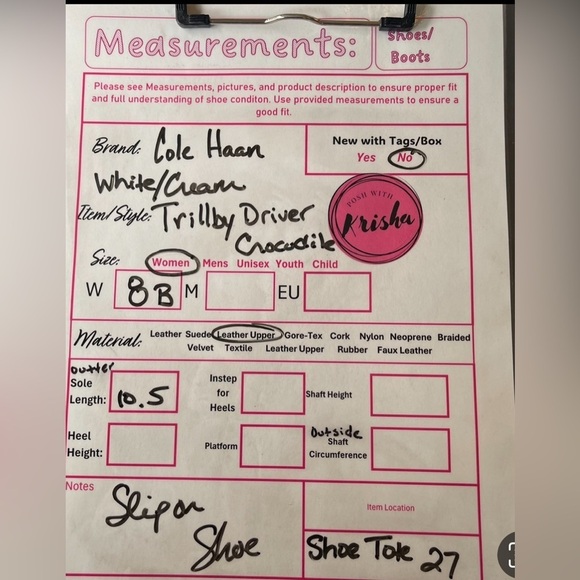 Measurements:
Shoes/
Boots
Please see Measurements, pictures, and product description to ensure proper fit
and full understanding of shoe conditon. Use provided measurements to ensure a
good fit.
Brand: Cole Haan
New with Tags/Box
Yes No
White/Cream
Item/Style: Trillby Driver
Crocodile
POSH WITH
Krisha
Size: Women Mens Unisex Youth Child
W 8B M EU
Material: Leather Suede Leather Upper Gore-Tex Cork Nylon Neoprene Braided
Velvet Textile Leather Upper Rubber Faux Leather
outter
Sole
Length: 10.5
Instep
for
Heels
Shaft Height
Heel
Height:
Platform
Outside
Shaft
Circumference
Notes
Slip on
Shoe
Item Location
Shoe Tote 27